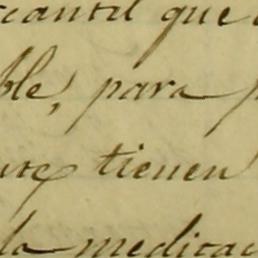 rcantil que
ble, para
tienen
la medicac